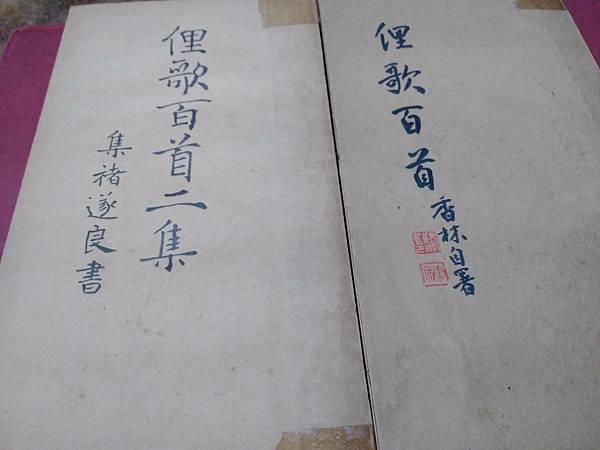 俚歌百首
香林自署
俚歌百首二集
集褚遂良書